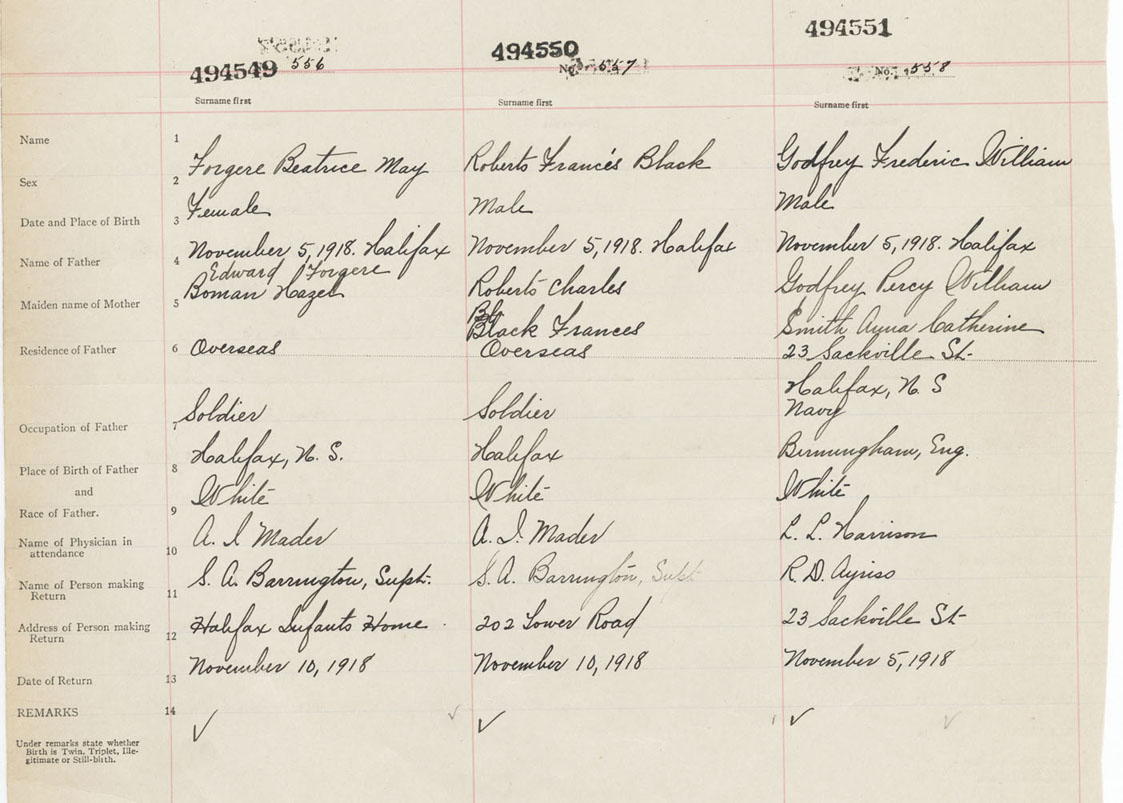 494549 556
494550 No. 557
494551 No. 558
Surname first Surname first Surname first
Name 1 Forgere Beatrice May Roberts Francis Black Godfrey Frederic William
Sex 2 Female Male Male
Date and Place of Birth 3 November 5, 1918. Halifax November 5, 1918. Halifax November 5, 1918. Halifax
Name of Father 4 Edward Forgere Roberts Charles Godfrey Percy William
Maiden name of Mother 5 Boman Hazel Bl Black Frances Smith Anna Catherine
Residence of Father 6 Overseas Overseas 23 Sackville St-
Halifax, N. S
Occupation of Father 7 Soldier Soldier Navy
Place of Birth of Father 8 Halifax, N. S. Halifax Birmingham, Eng.
and
Race of Father. 9 White White White
Name of Physician in
attendance 10 A. I Mader A. I. Mader L. L. Harrison
Name of Person making
Return 11 S. A. Barrington, Supt. S. A. Barrington, Supt R. D.
Address of Person making
Return 12 Halifax Infants Home 202 Tower Road 23 Sackville St-
Date of Return 13 November 10, 1918 November 10, 1918 November 5, 1918
REMARKS 14 ✓ ✓ ✓ ✓ ✓
Under remarks state whether
Birth is Twin, Triplet, Ille-
gitimate or Still-birth.